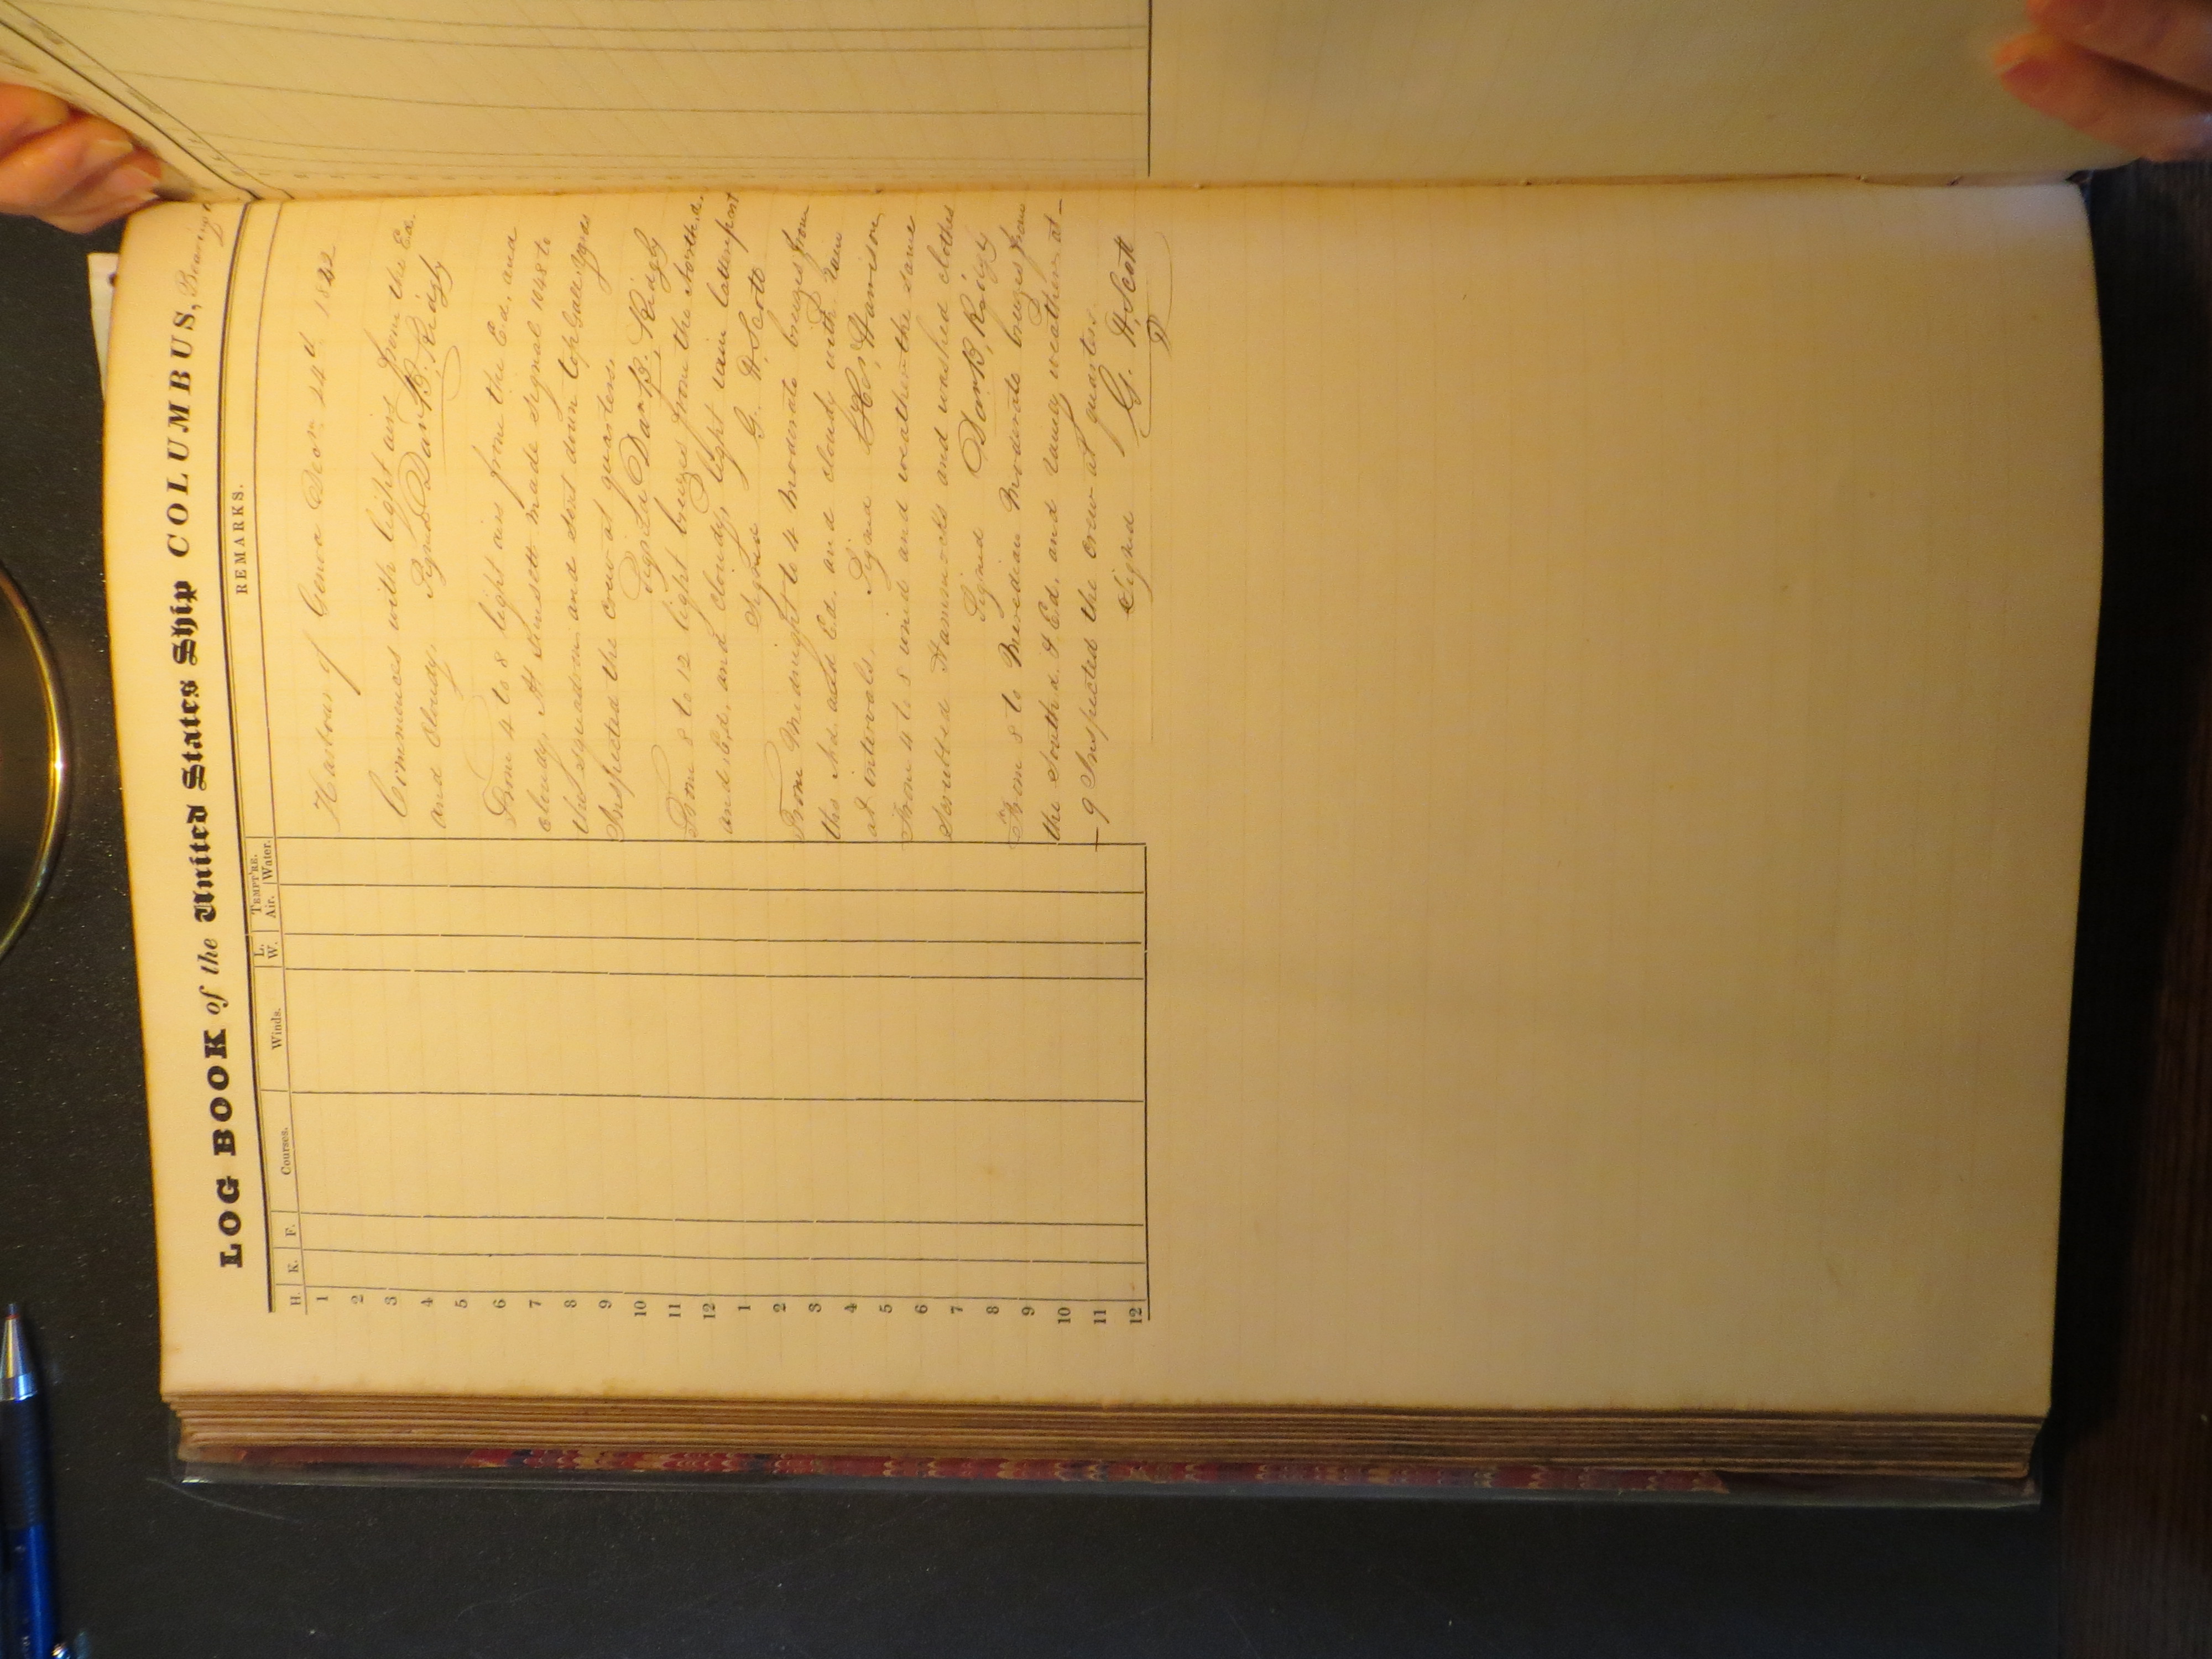 LOG BOOK of the United States Ship COLUMBUS, Bearing
H. K. F. Courses. Winds. L. W. TEMPT'RE. Air. Water. REMARKS.
1
2
3
4
5
6
7
8
9
10
11
12
1
2
3
4
5
6
7
8
9
10
11
12
Harbour of Genoa Decr. 24th 1842
Commences with light airs from the Ed.
and Cloudy. Signed Danl B. Ridgly
From 4 to 8 light airs from the Ed. and
cloudy. At Sunsett made signal 1048 to
the squadron and sent down topGall. Yards
Inspected the crew at quarters.
Danl B. Ridgly
From 8 to 12 light breezes from the North d.
and Ed. and cloudy, light rain latter part
Signed G. H. Scott
From Midnight to 4 Moderate breezes from
the Nd. and Ed. and cloudy with Rain
at intervals. Signed Harrison
From 4 to 8 wind and weather the same
Scrubbed Hammocks and washed clothes
Signed Danl B. Ridgly
From 8 to Meredian Moderate breezes from
the South d. & Ed. and rainy weather at -
- 9 Inspected the crew at quarters.
Signed G. H. Scott